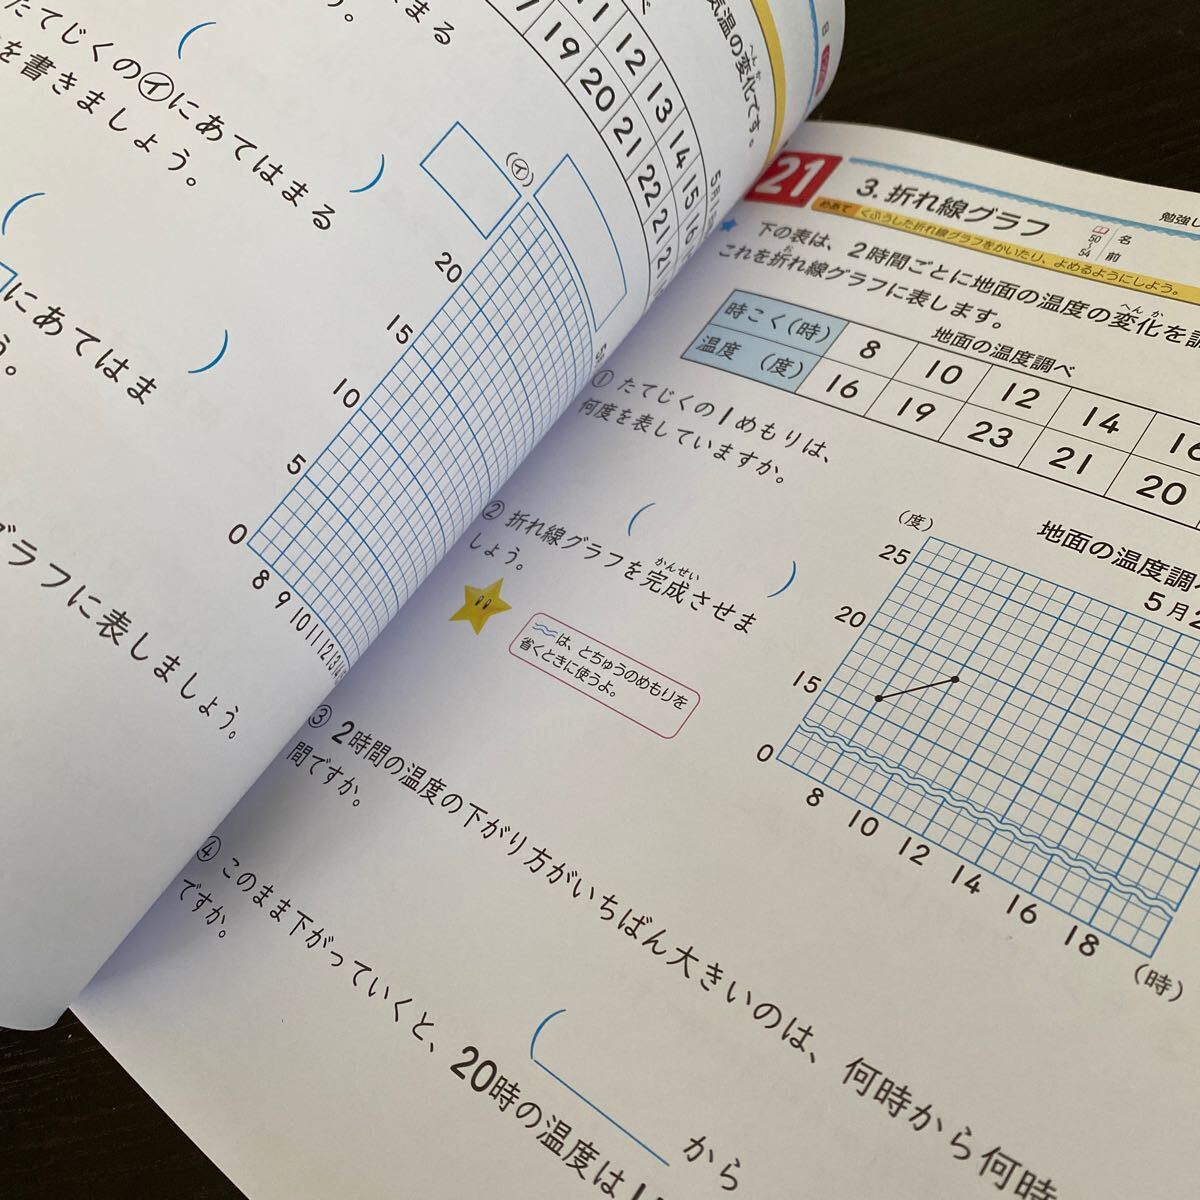 たてじくの㋑にあてはまる
を書きましょう。
にあてはま
う。
グラフに表しましょう。
気温の変化です。
へんか
11 12 13 14 15 16
19 20 21 22 21 21
(㋑)
20
15
10
5
0
8 9 10 11 12 13 14
21
3. 折れ線グラフ
めあて くふうした折れ線グラフをかいたり、よめるようにしよう。
50
54
名前
勉強し
下の表は、2時間ごとに地面の温度の変化を調
へんか
これを折れ線グラフに表します。
お
地面の温度調べ
時こく(時) 8 10 12 14 16
温度 (度) 16 19 23 21 20
① たてじくの1めもりは、
何度を表していますか。
( )
② 折れ線グラフを完成させま
かんせい
しょう。
〰は、とちゅうのめもりを
省くときに使うよ。
地面の温度調べ
5月2
(度)
25
20
15
0
8 10 12 14 16 18
(時)
③ 2時間の温度の下がり方がいちばん大きいのは、何時から何時
間ですか。
( から
④ このまま下がっていくと、20時の温度は
ですか。